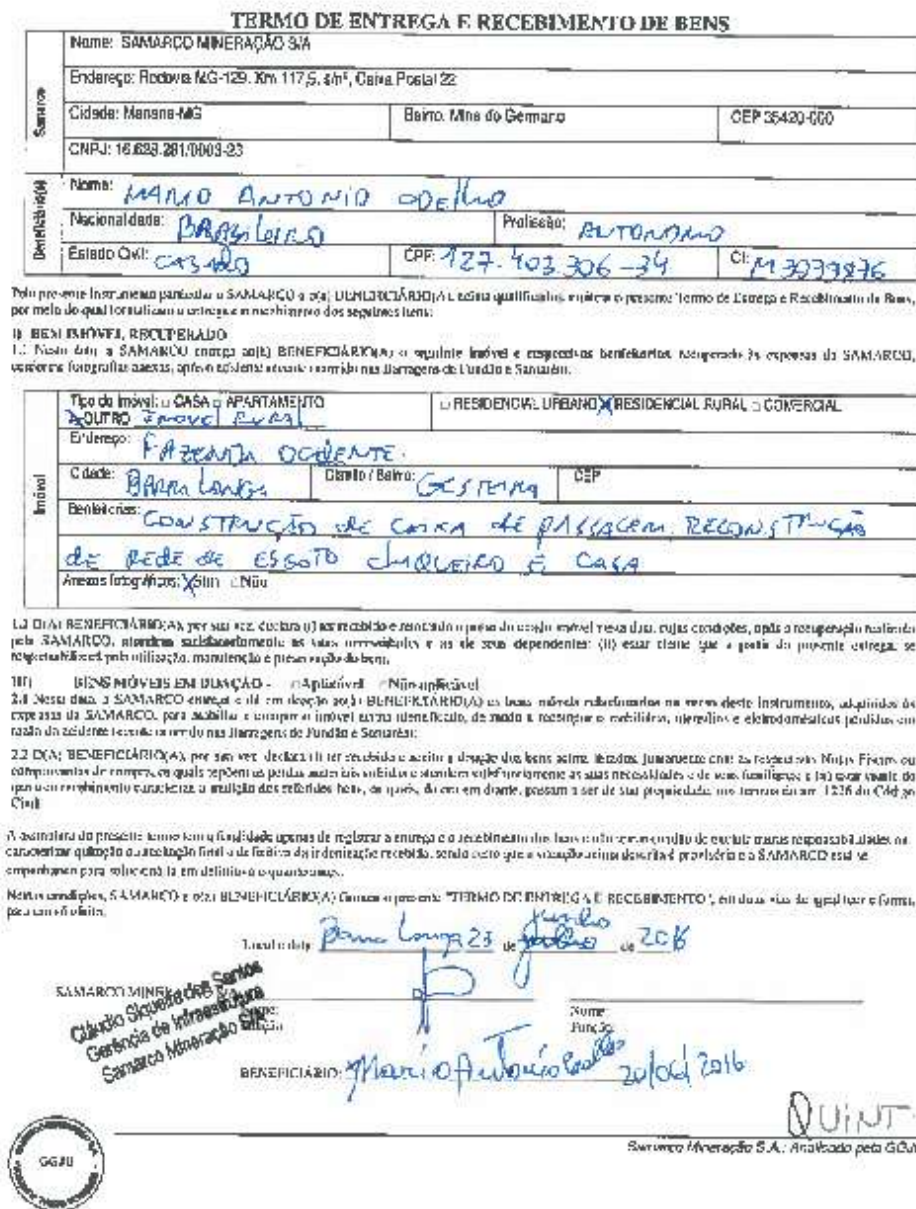 TERMO DE ENTREGA E RECEBIMENTO DE BENS
Samarco
Nome: SAMARCO MINERAÇÃO S/A
Endereço: Rodovia MG-129, Km 117,5, s/nº, Caixa Postal 22
Cidade: Mariana-MG
Bairro: Mina do Germano
CEP 35420-000
CNPJ: 16.628.281/0003-23
Beneficiário(s)
Nome: MARIO ANTONIO COELHO
Nacionalidade: BRASILEIRO
Profissão: AUTONOMO
Estado Civil: CASADO
CPF: 127.403.306-34
CI: M3039876
Pelo presente instrumento particular a SAMARCO e o(a) BENEFICIÁRIO(A), acima qualificados, assinam o presente Termo de Entrega e Recebimento de Bens,
por meio do qual formalizam a entrega e o recebimento dos seguintes itens:
I) BEM IMÓVEL RECUPERADO
1.1 Nesta data a SAMARCO entrega ao(à) BENEFICIÁRIO(A) o seguinte imóvel e respectivas benfeitorias, recuperado às expensas da SAMARCO,
conforme fotografias anexas, após o acidente ocorrido nas Barragens de Fundão e Santarém:
Imóvel
Tipo do Imóvel: □ CASA □ APARTAMENTO
□ RESIDENCIAL URBANO X RESIDENCIAL RURAL □ COMERCIAL
X OUTRO Imovel Rural
Endereço: FAZENDA OCIDENTE
Cidade: BARRA LONGA
Distrito / Bairro: GESTEIRA
CEP
Benfeitorias: CONSTRUÇÃO DE CAIXA DE PASSAGEM, RECONSTRUÇÃO
DE REDE DE ESGOTO CHIQUEIRO E CASA
Anexos fotográficos: X Sim □ Não
1.2 O(A) BENEFICIÁRIO(A), por sua vez, declara (i) ter recebido e retomado a posse do citado imóvel nesta data, cujas condições, após a recuperação realizada
pela SAMARCO, atendem satisfatoriamente as suas necessidades e as de seus dependentes; (ii) estar ciente que a partir da presente entrega, se
responsabilizará pela utilização, manutenção e preservação do bem.
II) BENS MÓVEIS EM DOAÇÃO - □ Aplicável □ Não aplicável
2.1 Nesta data, a SAMARCO entrega e dá em doação ao(à) BENEFICIÁRIO(A) os bens móveis relacionados no verso deste instrumento, adquiridos às
expensas da SAMARCO, para mobiliar e compor o imóvel acima identificado, de modo a recompor o mobiliário, utensílios e eletrodomésticos perdidos em
razão do acidente ocorrido nas Barragens de Fundão e Santarém:
2.2 O(A) BENEFICIÁRIO(A), por sua vez, declara (i) ter recebido e aceito a doação dos bens acima listados, juntamente com as respectivas Notas Fiscais ou
comprovantes de compra, os quais repõem as perdas materiais sofridas e atendem satisfatoriamente as suas necessidades e de seus familiares; e (ii) estar ciente de
que o recebimento caracteriza a tradição dos referidos bens, os quais, de ora em diante, passam a ser de sua propriedade, nos termos do art. 1226 do Código
Civil.
A assinatura do presente termo tem a finalidade apenas de registrar a entrega e o recebimento dos bens e não tem o condão de excluir outras responsabilidades ou
caracterizar quitação ou aceitação final e definitiva da indenização recebida, sendo certo que a situação acima descrita é provisória e a SAMARCO está se
empenhando para solucioná-la em definitivo o quanto antes.
Nestas condições, SAMARCO e o(a) BENEFICIÁRIO(A) firmam o presente "TERMO DE ENTREGA E RECEBIMENTO", em duas vias de igual teor e forma,
para um só efeito.
Local e data: Barra Longa 23 de junho de 2016
SAMARCO MINERAÇÃO S/A
Cláudio Siqueira dos Santos
Gerência de Infraestrutura
Samarco Mineração S/A
Nome:
Função:
Nome:
Função:
BENEFICIÁRIO: Mario Antonio Coelho 20/06/2016
QUINT
Samarco Mineração S.A.: Analisado pela GGJU
GGJU